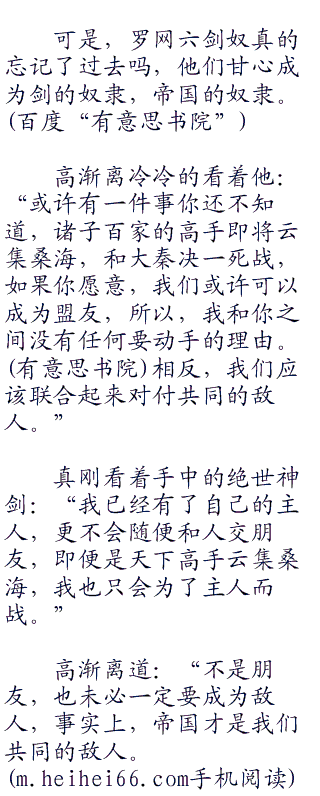 可是，罗网六剑奴真的
忘记了过去吗，他们甘心成
为剑的奴隶，帝国的奴隶。
(百度“有意思书院”)
高渐离冷冷的看着他：
“或许有一件事你还不知
道，诸子百家的高手即将云
集桑海，和大秦决一死战，
如果你愿意，我们或许可以
成为盟友，所以，我和你之
间没有任何要动手的理由。
(有意思书院)相反，我们应
该联合起来对付共同的敌
人。”
真刚看着手中的绝世神
剑：“我已经有了自己的主
人，更不会随便和人交朋
友，即便是天下高手云集桑
海，我也只会为了主人而
战。”
高渐离道：“不是朋
友，也未必一定要成为敌
人，事实上，帝国才是我们
共同的敌人。
(m.heihei66.com手机阅读)